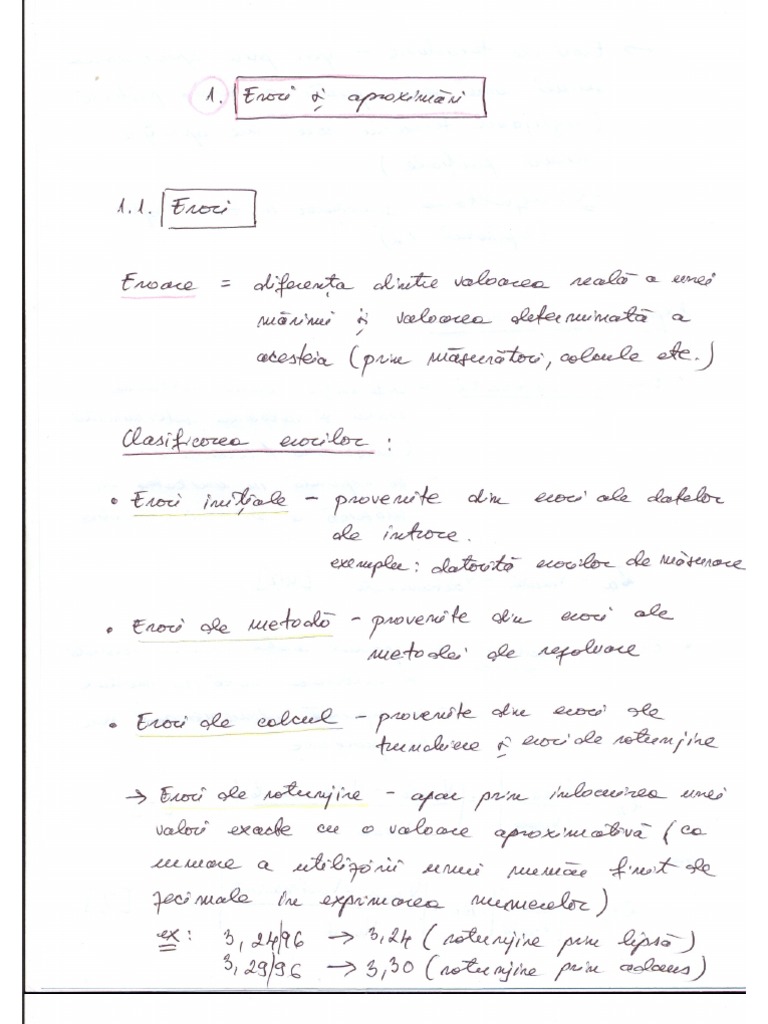 1. Erori și aproximări
1.1. Erori
Eroare = diferența dintre valoarea reală a unei
mărimi și valoarea determinată a
acesteia (prin măsurători, calcule etc.)
Clasificarea erorilor :
• Erori inițiale – provenite din erori ale datelor
de intrare.
exemplu: datorită erorilor de măsurare
• Erori de metodă – provenite din erori ale
metodei de rezolvare
• Erori de calcul – provenite din erori de
trunchiere și erori de rotunjire
→ Erori de rotunjire – apar prin înlocuirea unei
valori exacte cu o valoare aproximativă (ca
urmare a utilizării unui număr finit de
zecimale în exprimarea numerelor)
ex: 3,24/96 → 3,24 (rotunjire prin lipsă)
3,29/96 → 3,30 (rotunjire prin adaus)